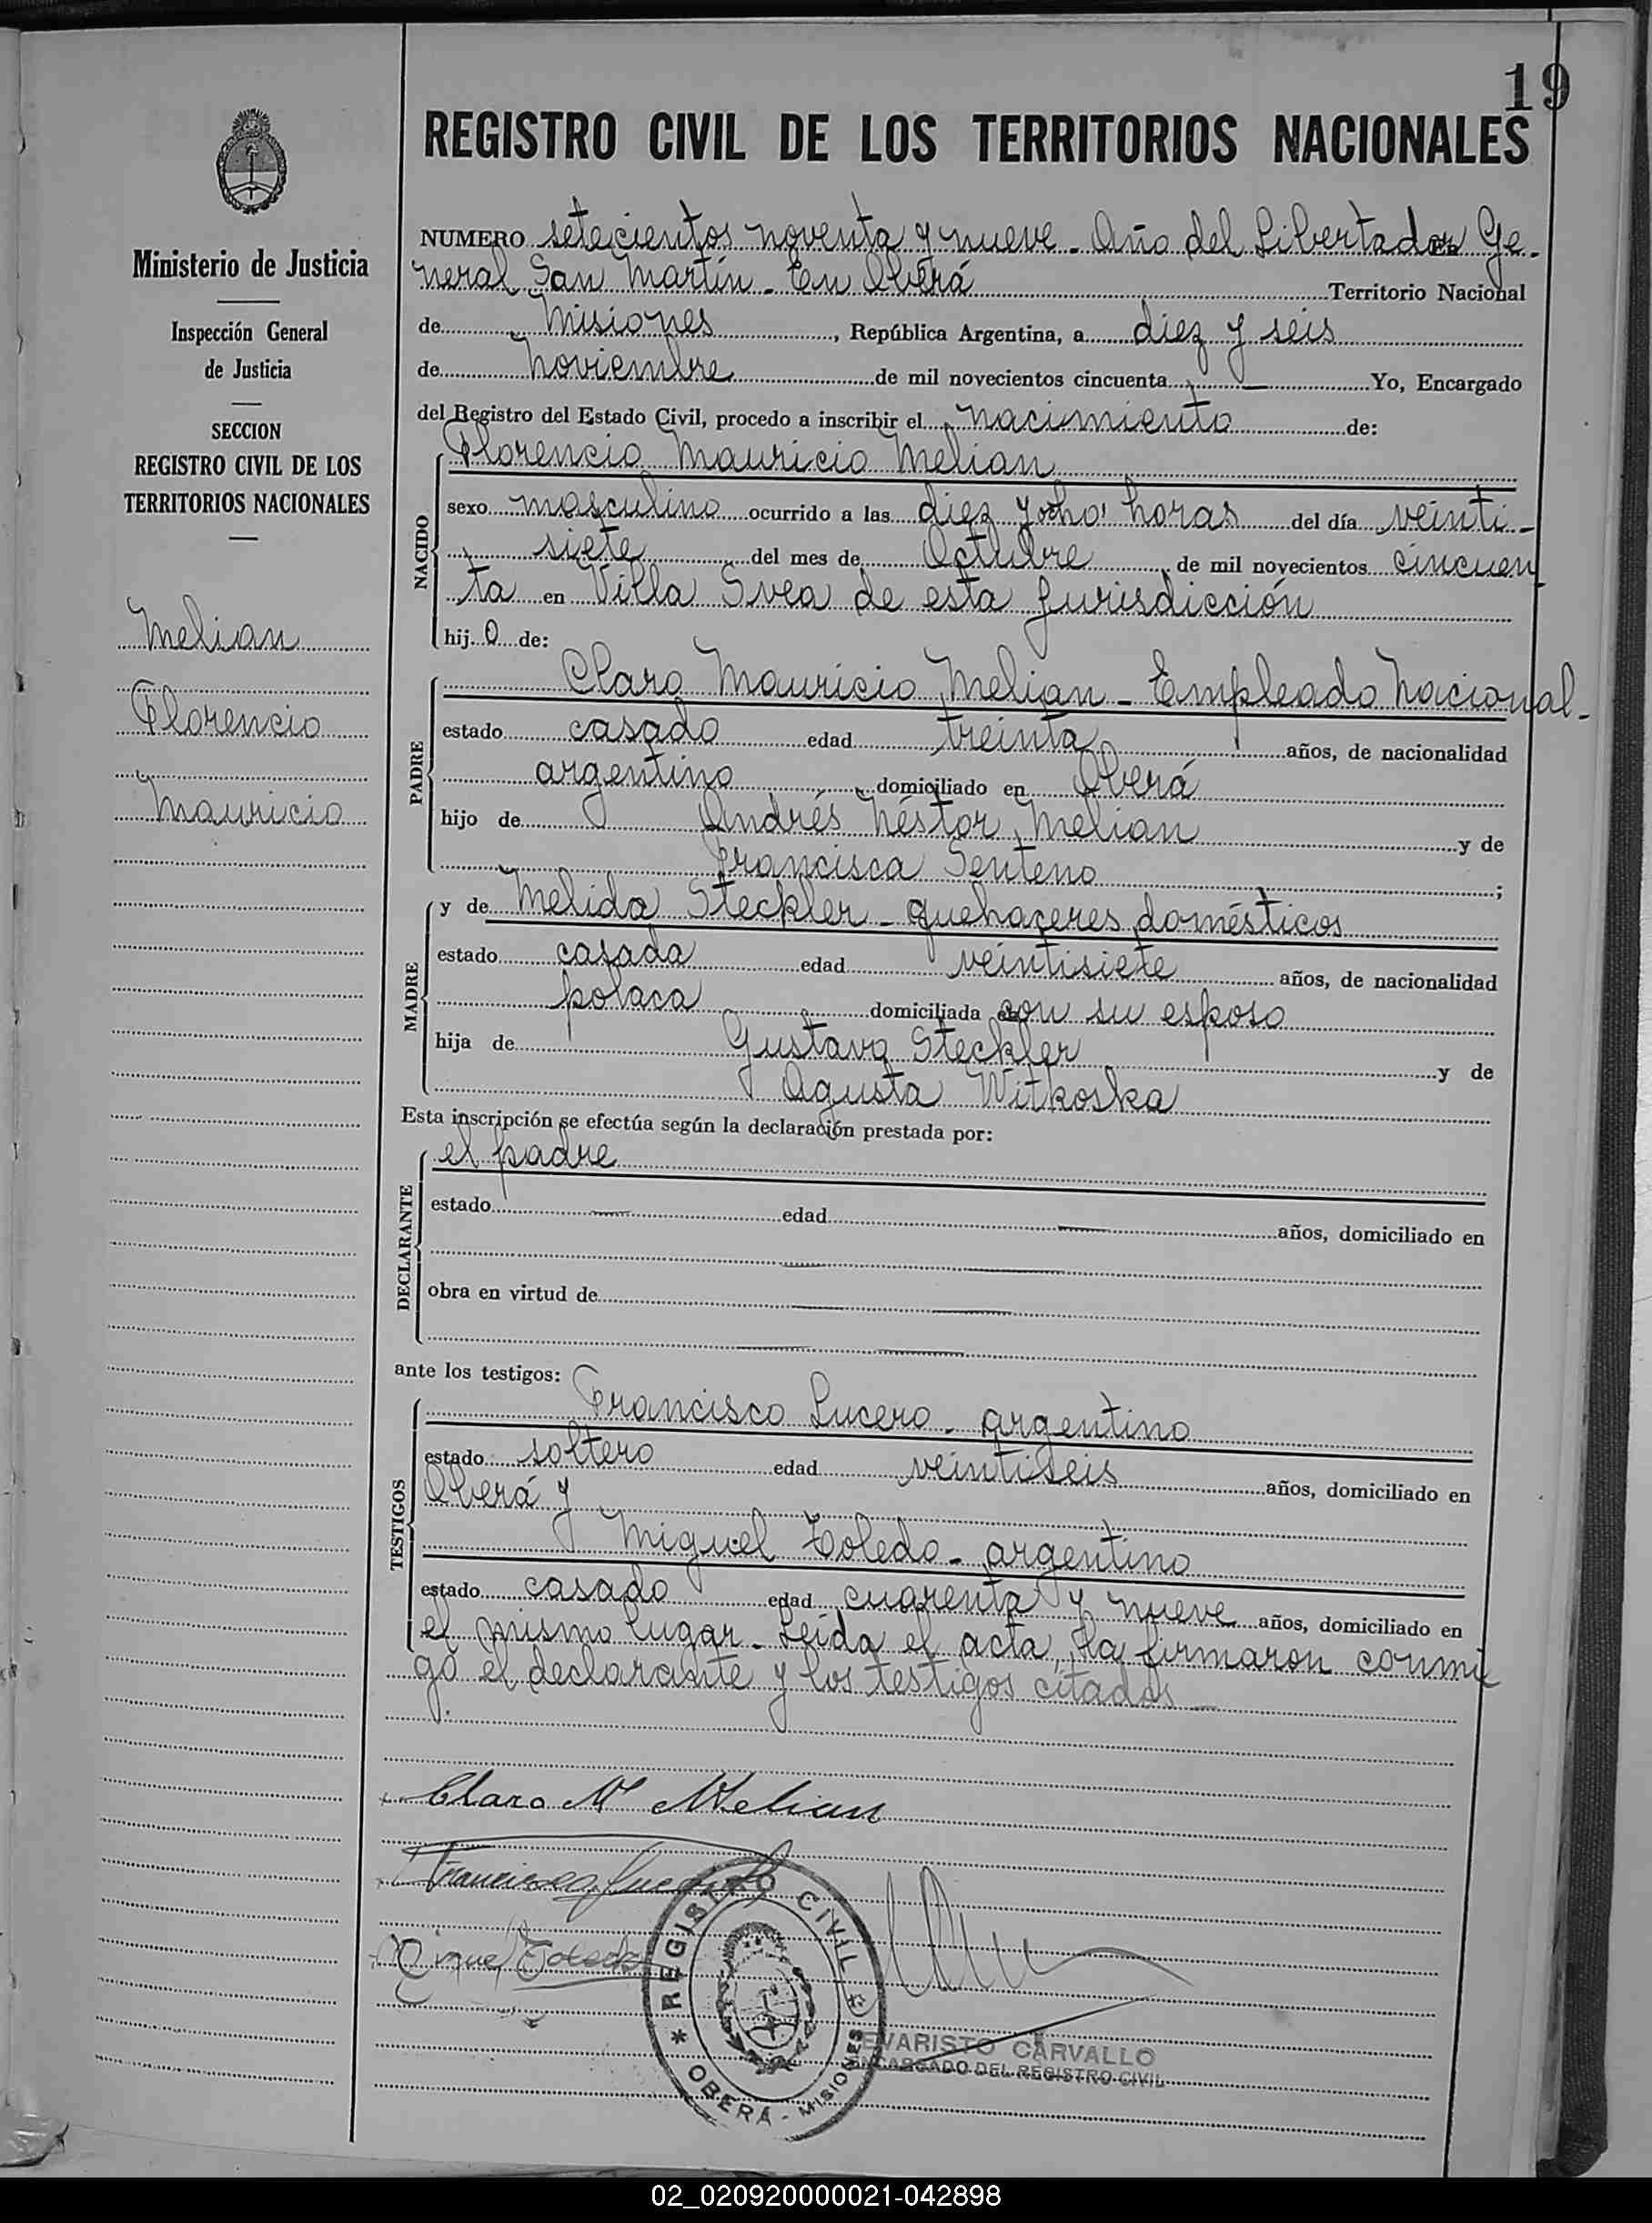 19
REGISTRO CIVIL DE LOS TERRITORIOS NACIONALES
Ministerio de Justicia
Inspección General
de Justicia
SECCION
REGISTRO CIVIL DE LOS
TERRITORIOS NACIONALES
Melian
Florencio
Mauricio
NUMERO setecientos noventa y nueve - Año del Libertador Ge-
neral San Martín - En Oberá Territorio Nacional
de Misiones, República Argentina, a diez y seis
de Noviembre de mil novecientos cincuenta Yo, Encargado
del Registro del Estado Civil, procedo a inscribir el nacimiento de:
NACIDO
Florencio Mauricio Melian
sexo masculino ocurrido a las diez y ocho horas del día veinti-
siete del mes de Octubre de mil novecientos cincuen
ta en Villa Svea de esta jurisdicción
hij o de:
PADRE
Claro Mauricio Melian - Empleado Nacional-
estado casado edad treinta años, de nacionalidad
argentino domiciliado en Oberá
hijo de Andrés Néstor Melian y de
Francisca Senteno;
MADRE
y de Melida Steckler - quehaceres domésticos
estado casada edad veintisiete años, de nacionalidad
polaca domiciliada con su esposo
hija de Gustavo Steckler y de
Agusta Witkoska
Esta inscripción se efectúa según la declaración prestada por:
DECLARANTE
el padre
estado edad años, domiciliado en
obra en virtud de
ante los testigos:
TESTIGOS
Francisco Lucero - argentino
estado soltero edad veintiseis años, domiciliado en
Oberá y
Miguel Toledo - argentino
estado casado edad cuarenta y nueve años, domiciliado en
el mismo lugar - Leida el acta, la firmaron conmi
go el declarante y los testigos citados -
Claro M Melian
Francisco Lucero
Miguel Toledo
REGISTRO CIVIL
OBERÁ - MISIONES
EVARISTO CARVALLO
ENCARGADO DEL REGISTRO CIVIL
02_020920000021-042898